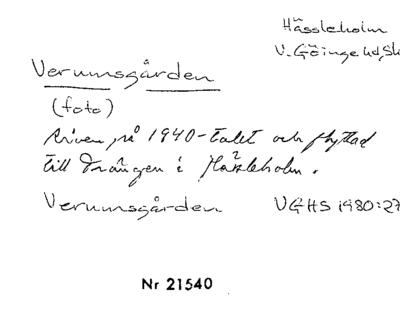 Hässleholm
V. Göinge hd, Sk
Verumsgården
(foto)
Riven på 1940-talet och flyttad
till Vrången i Hässleholm.
Verumsgården VGHS 1980:27
Nr 21540